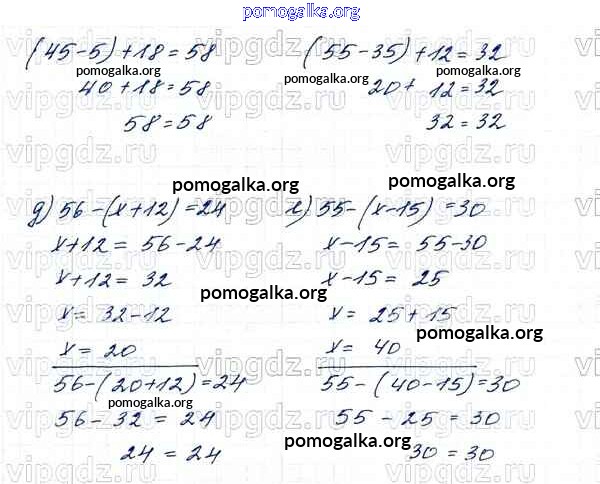 pomogalka.org
(45-5)+18=58
pomogalka.org
40+18=58
58=58
(55-35)+12=32
pomogalka.org
20+12=32
32=32
pomogalka.org
д) 56-(x+12)=24
x+12= 56-24
x+12= 32
x= 32-12
x= 20
56-(20+12)=24
pomogalka.org
56-32=24
24=24
pomogalka.org
pomogalka.org
е) 55-(x-15)=30
x-15= 55-30
x-15= 25
x= 25+15
pomogalka.org
x= 40
55-(40-15)=30
pomogalka.org
55-25=30
pomogalka.org
30=30
vipgdz.ru